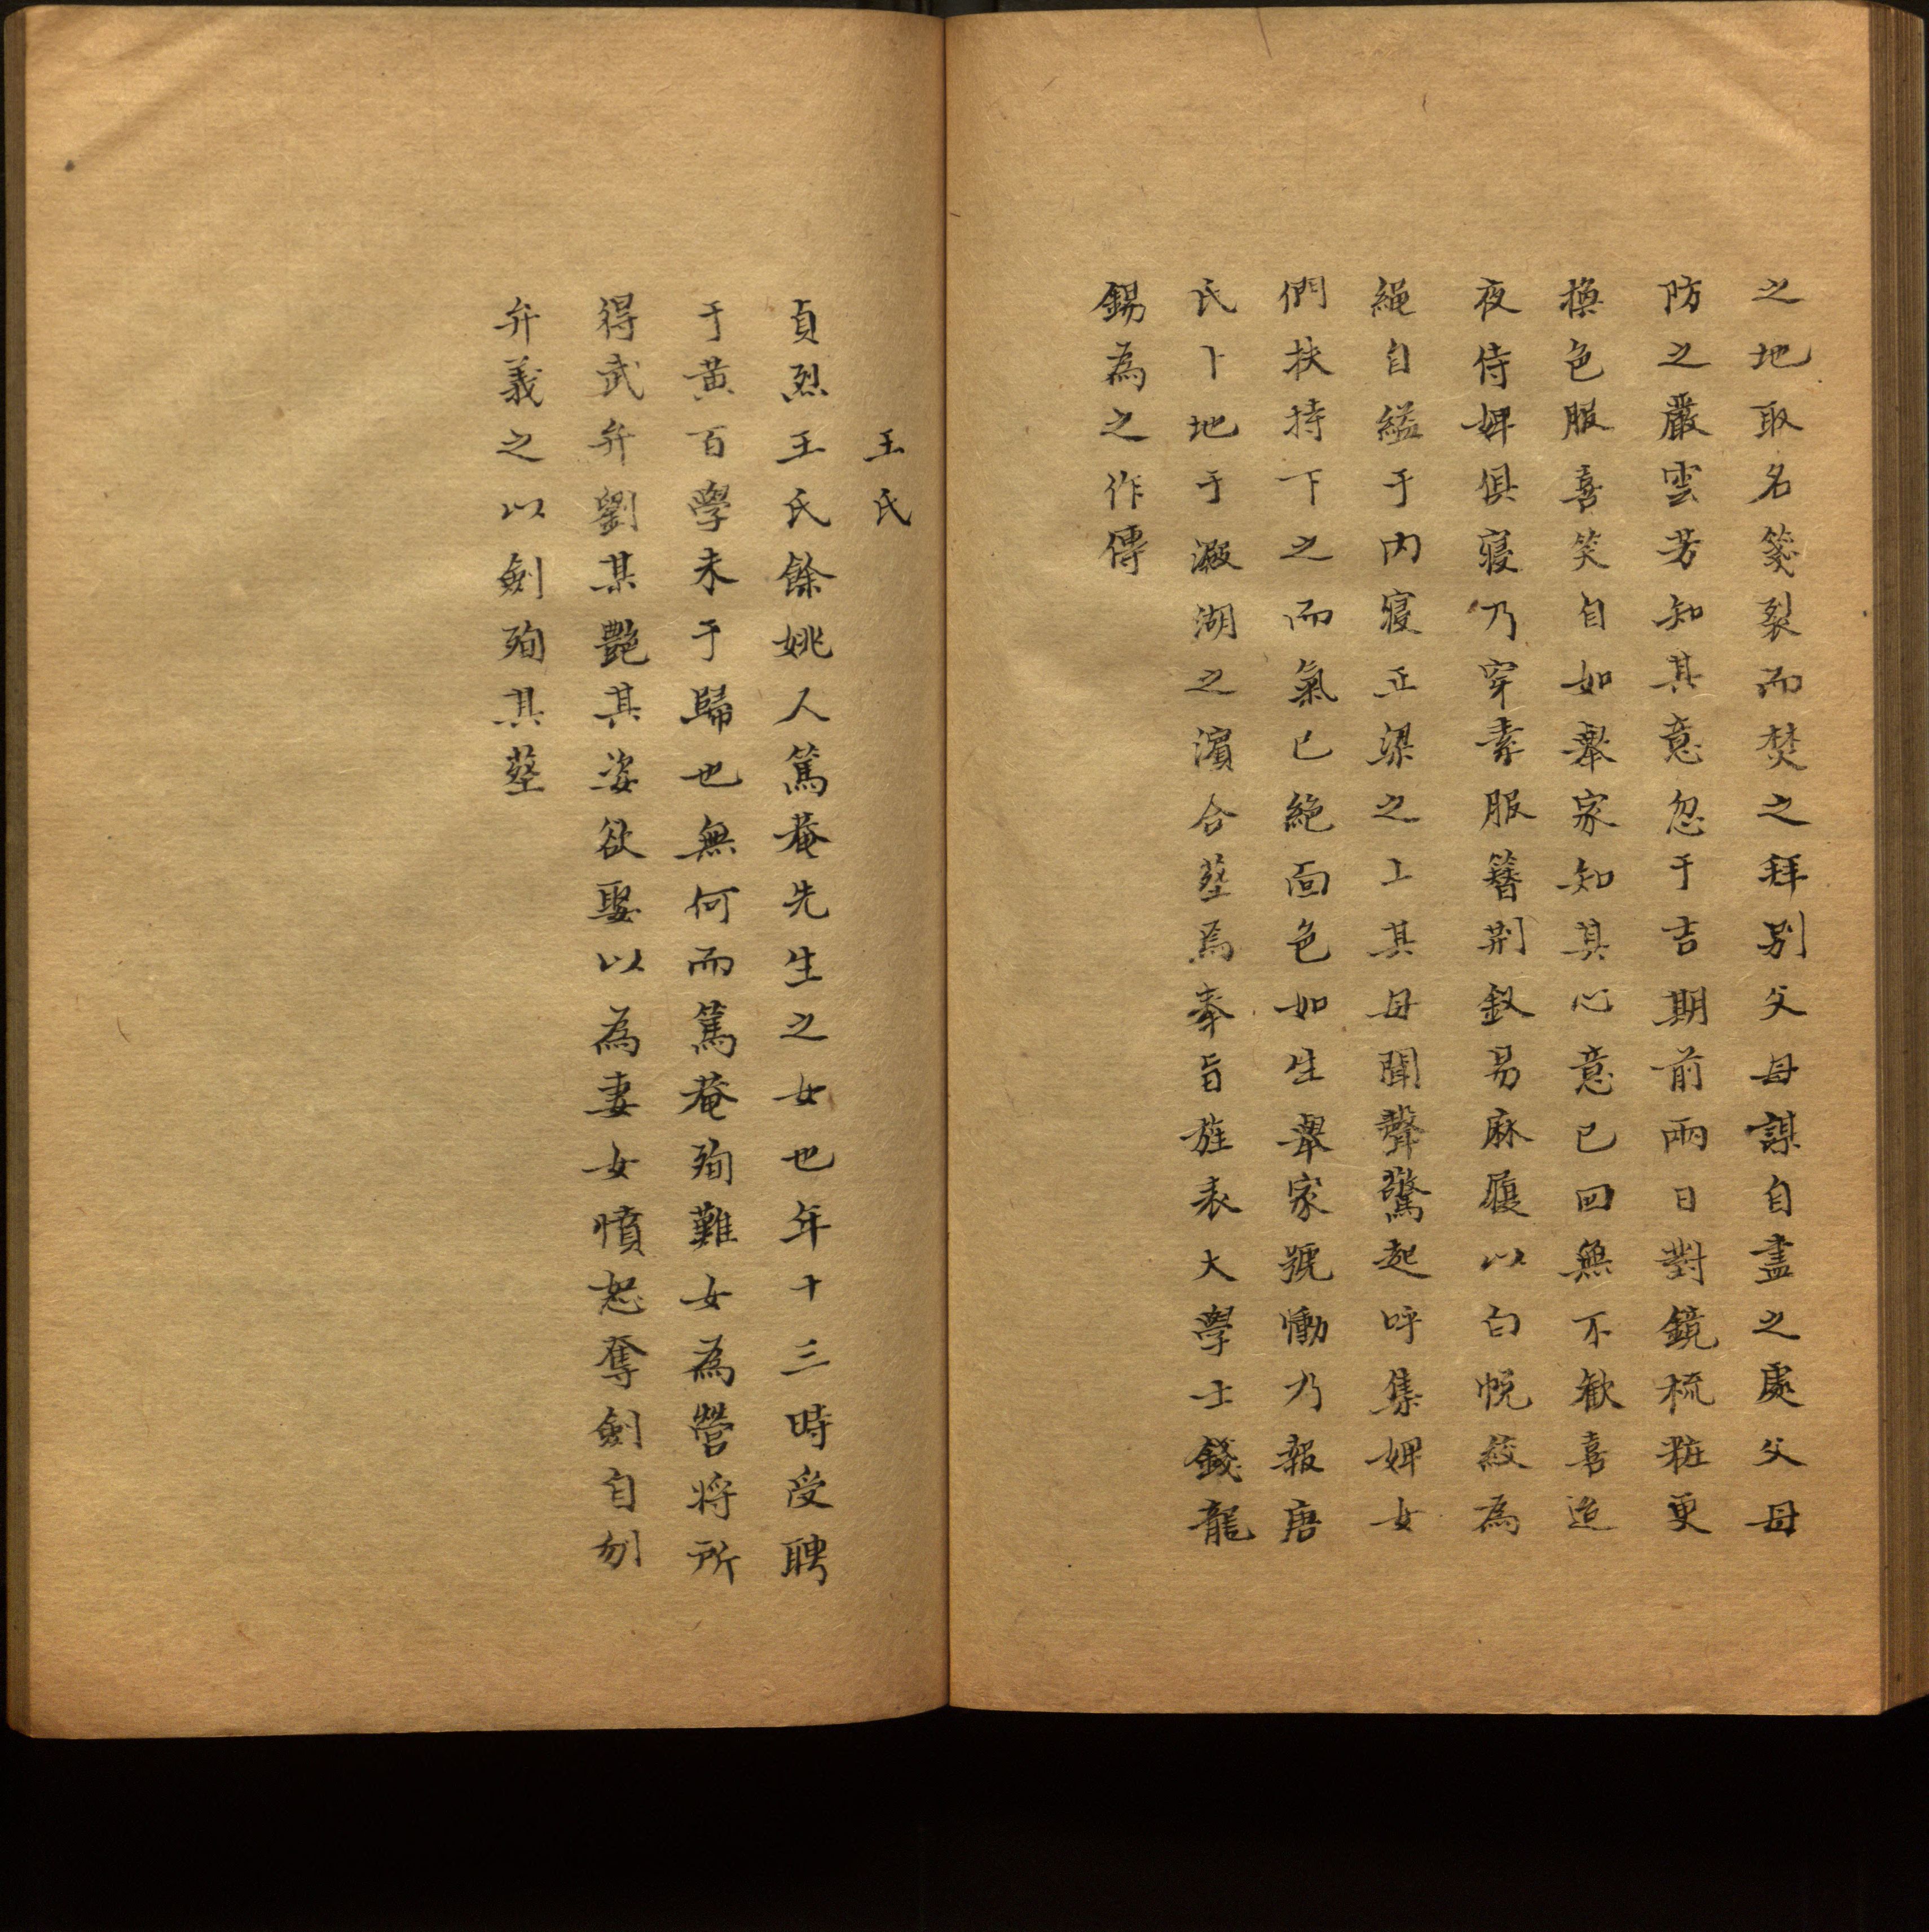 之地取名箋裂而焚之拜别父母謀自盡之處父母
防之嚴雲芳知其意忽于吉期前兩日對鏡梳粧更
換色服喜笑自如舉家知其心意已回無不歡喜迨
夜侍婢俱寝乃穿素服簪荆釵易麻履以白帨絞為
繩自縊于内寝正梁之上其母聞聲驚起呼集婢女
們扶持下之而氣已絶面色如生舉家號慟乃報唐
氏卜地于澱湖之濱合塟焉奉旨旌表大學士錢龍
錫為之作傳
王氏
貞烈王氏餘姚人篤菴先生之女也年十三時受聘
于黄百學未于歸也無何而篤菴殉難女為營将所
得武弁劉某艶其姿欲娶以為妻女憤恕奪劍自刎
弁義之以劍殉其塟